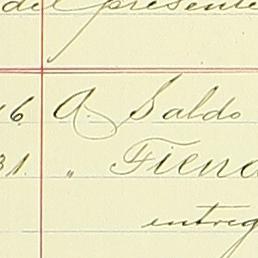 del presente
16. A. Saldo
31. " Tiend
entreg